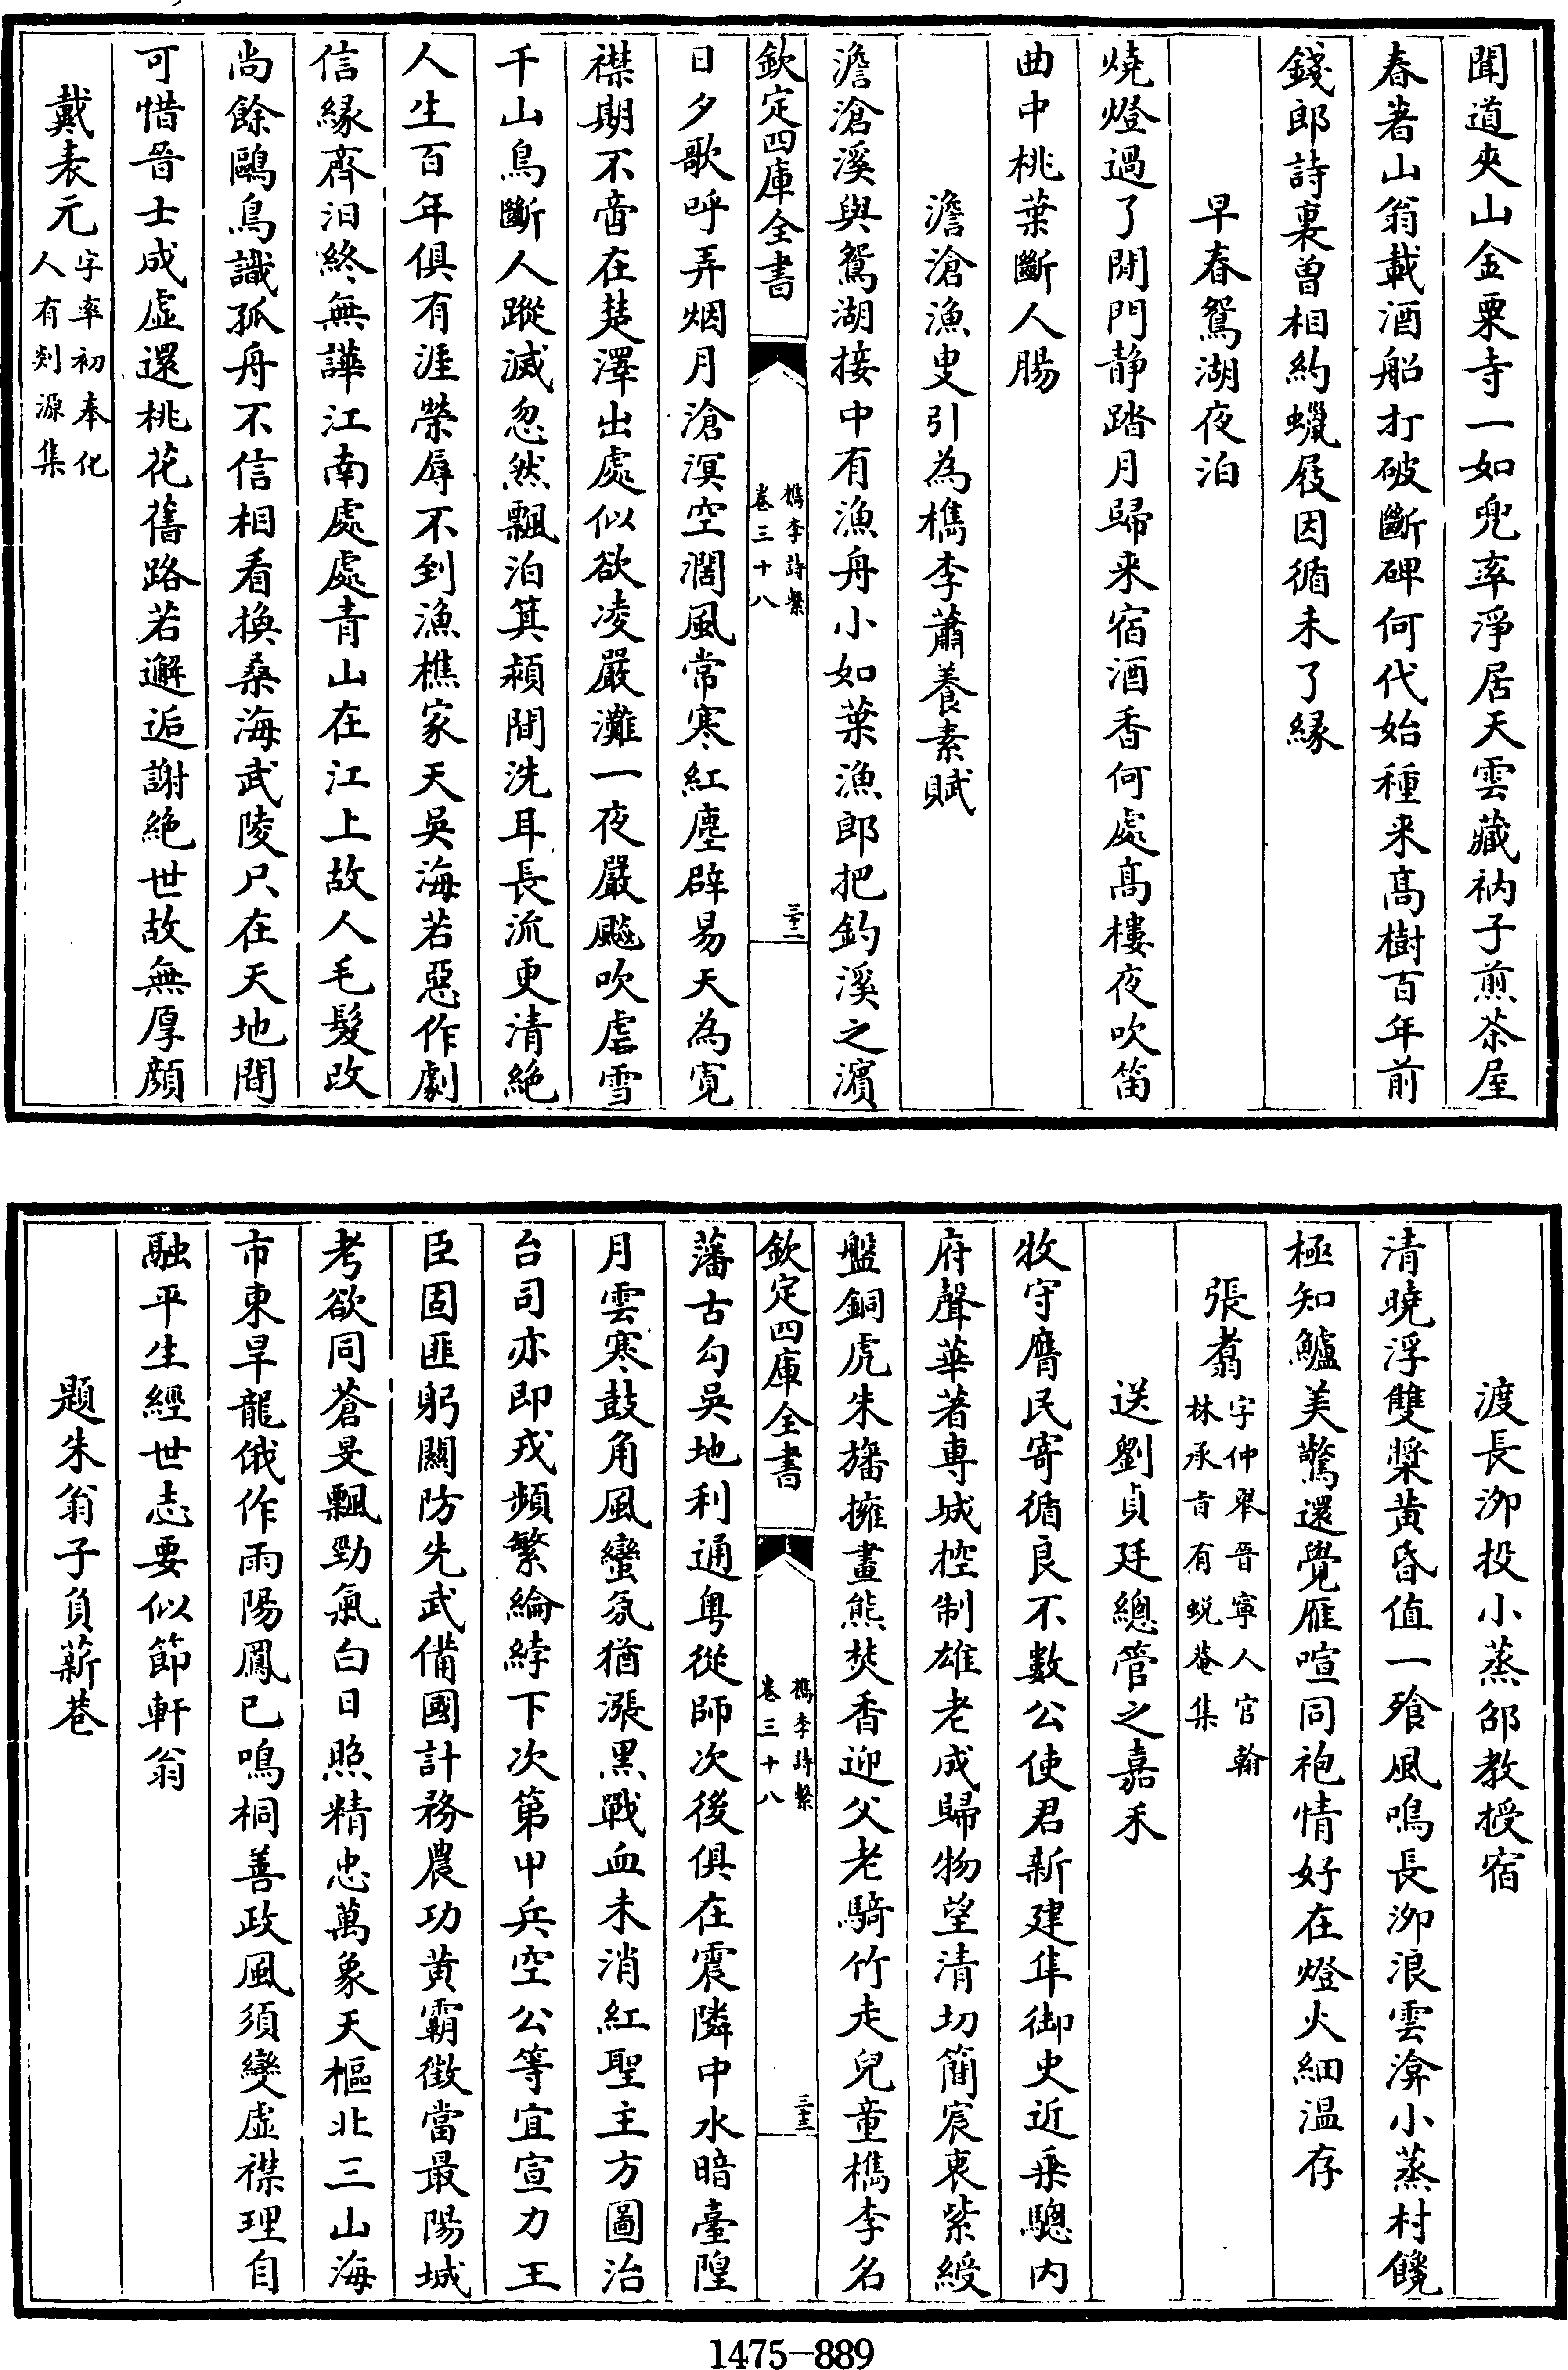 聞道夾山金粟寺一如兜率淨居天雲藏衲子煎茶屋
春著山翁載酒船打破斷碑何代始種来髙樹百年前
錢郎詩裏曾相約蠟屐因循未了縁
早春鴛湖夜泊
燒燈過了閒門静踏月歸来宿酒香何處髙樓夜吹笛
曲中桃葉斷人腸
澹滄漁叟引為檇李蕭養素賦
澹滄溪與鴛湖接中有漁舟小如葉漁郎把釣溪之濵
欽定四庫全書
檇李詩繫
卷三十八
三十二
日夕歌呼弄烟月滄溟空濶風常寒紅塵辟易天為寛
襟期不啻在楚澤出處似欲凌嚴灘一夜嚴飈吹虐雪
千山鳥斷人蹤滅忽然飄泊箕潁間洗耳長流更清絶
人生百年俱有涯榮辱不到漁樵家天吳海若惡作劇
信縁齊汨終無譁江南處處青山在江上故人毛髮改
尚餘鷗鳥識孤舟不信相看換桑海武陵只在天地間
可惜晉士成虛還桃花舊路若邂逅謝絶世故無厚顔
戴表元
字率初奉化
人有剡源集
渡長泖投小蒸邵教授宿
清曉浮雙槳黄昏值一飱風鳴長泖浪雲渰小蒸村饞
極知鱸美驚還覺雁喧同袍情好在燈火細温存
張翥
字仲舉晉寧人官翰
林承㫖有蜕菴集
送劉貞廷總管之嘉禾
牧守膺民寄循良不數公使君新建隼御史近乗驄内
府聲華著専城控制雄老成歸物望清切簡宸衷紫綬
盤銅虎朱旛擁畫熊焚香迎父老騎竹走兒童檇李名
欽定四庫全書
檇李詩繫
卷三十八
三十三
藩古勾吳地利通粤從師次後俱在震隣中水暗臺隍
月雲寒鼓角風蠻氛猶漲黒戰血未消紅聖主方圖治
台司亦即戎頻繁綸綍下次第甲兵空公等宜宣力王
臣固匪躬闗防先武備國計務農功黄霸徴當最陽城
考欲同蒼旻飄勁氣白日照精忠萬象天樞北三山海
市東旱龍俄作雨陽鳳已鳴桐善政風須變虛襟理自
融平生經世志要似節軒翁
題朱翁子負薪巷
1475-889